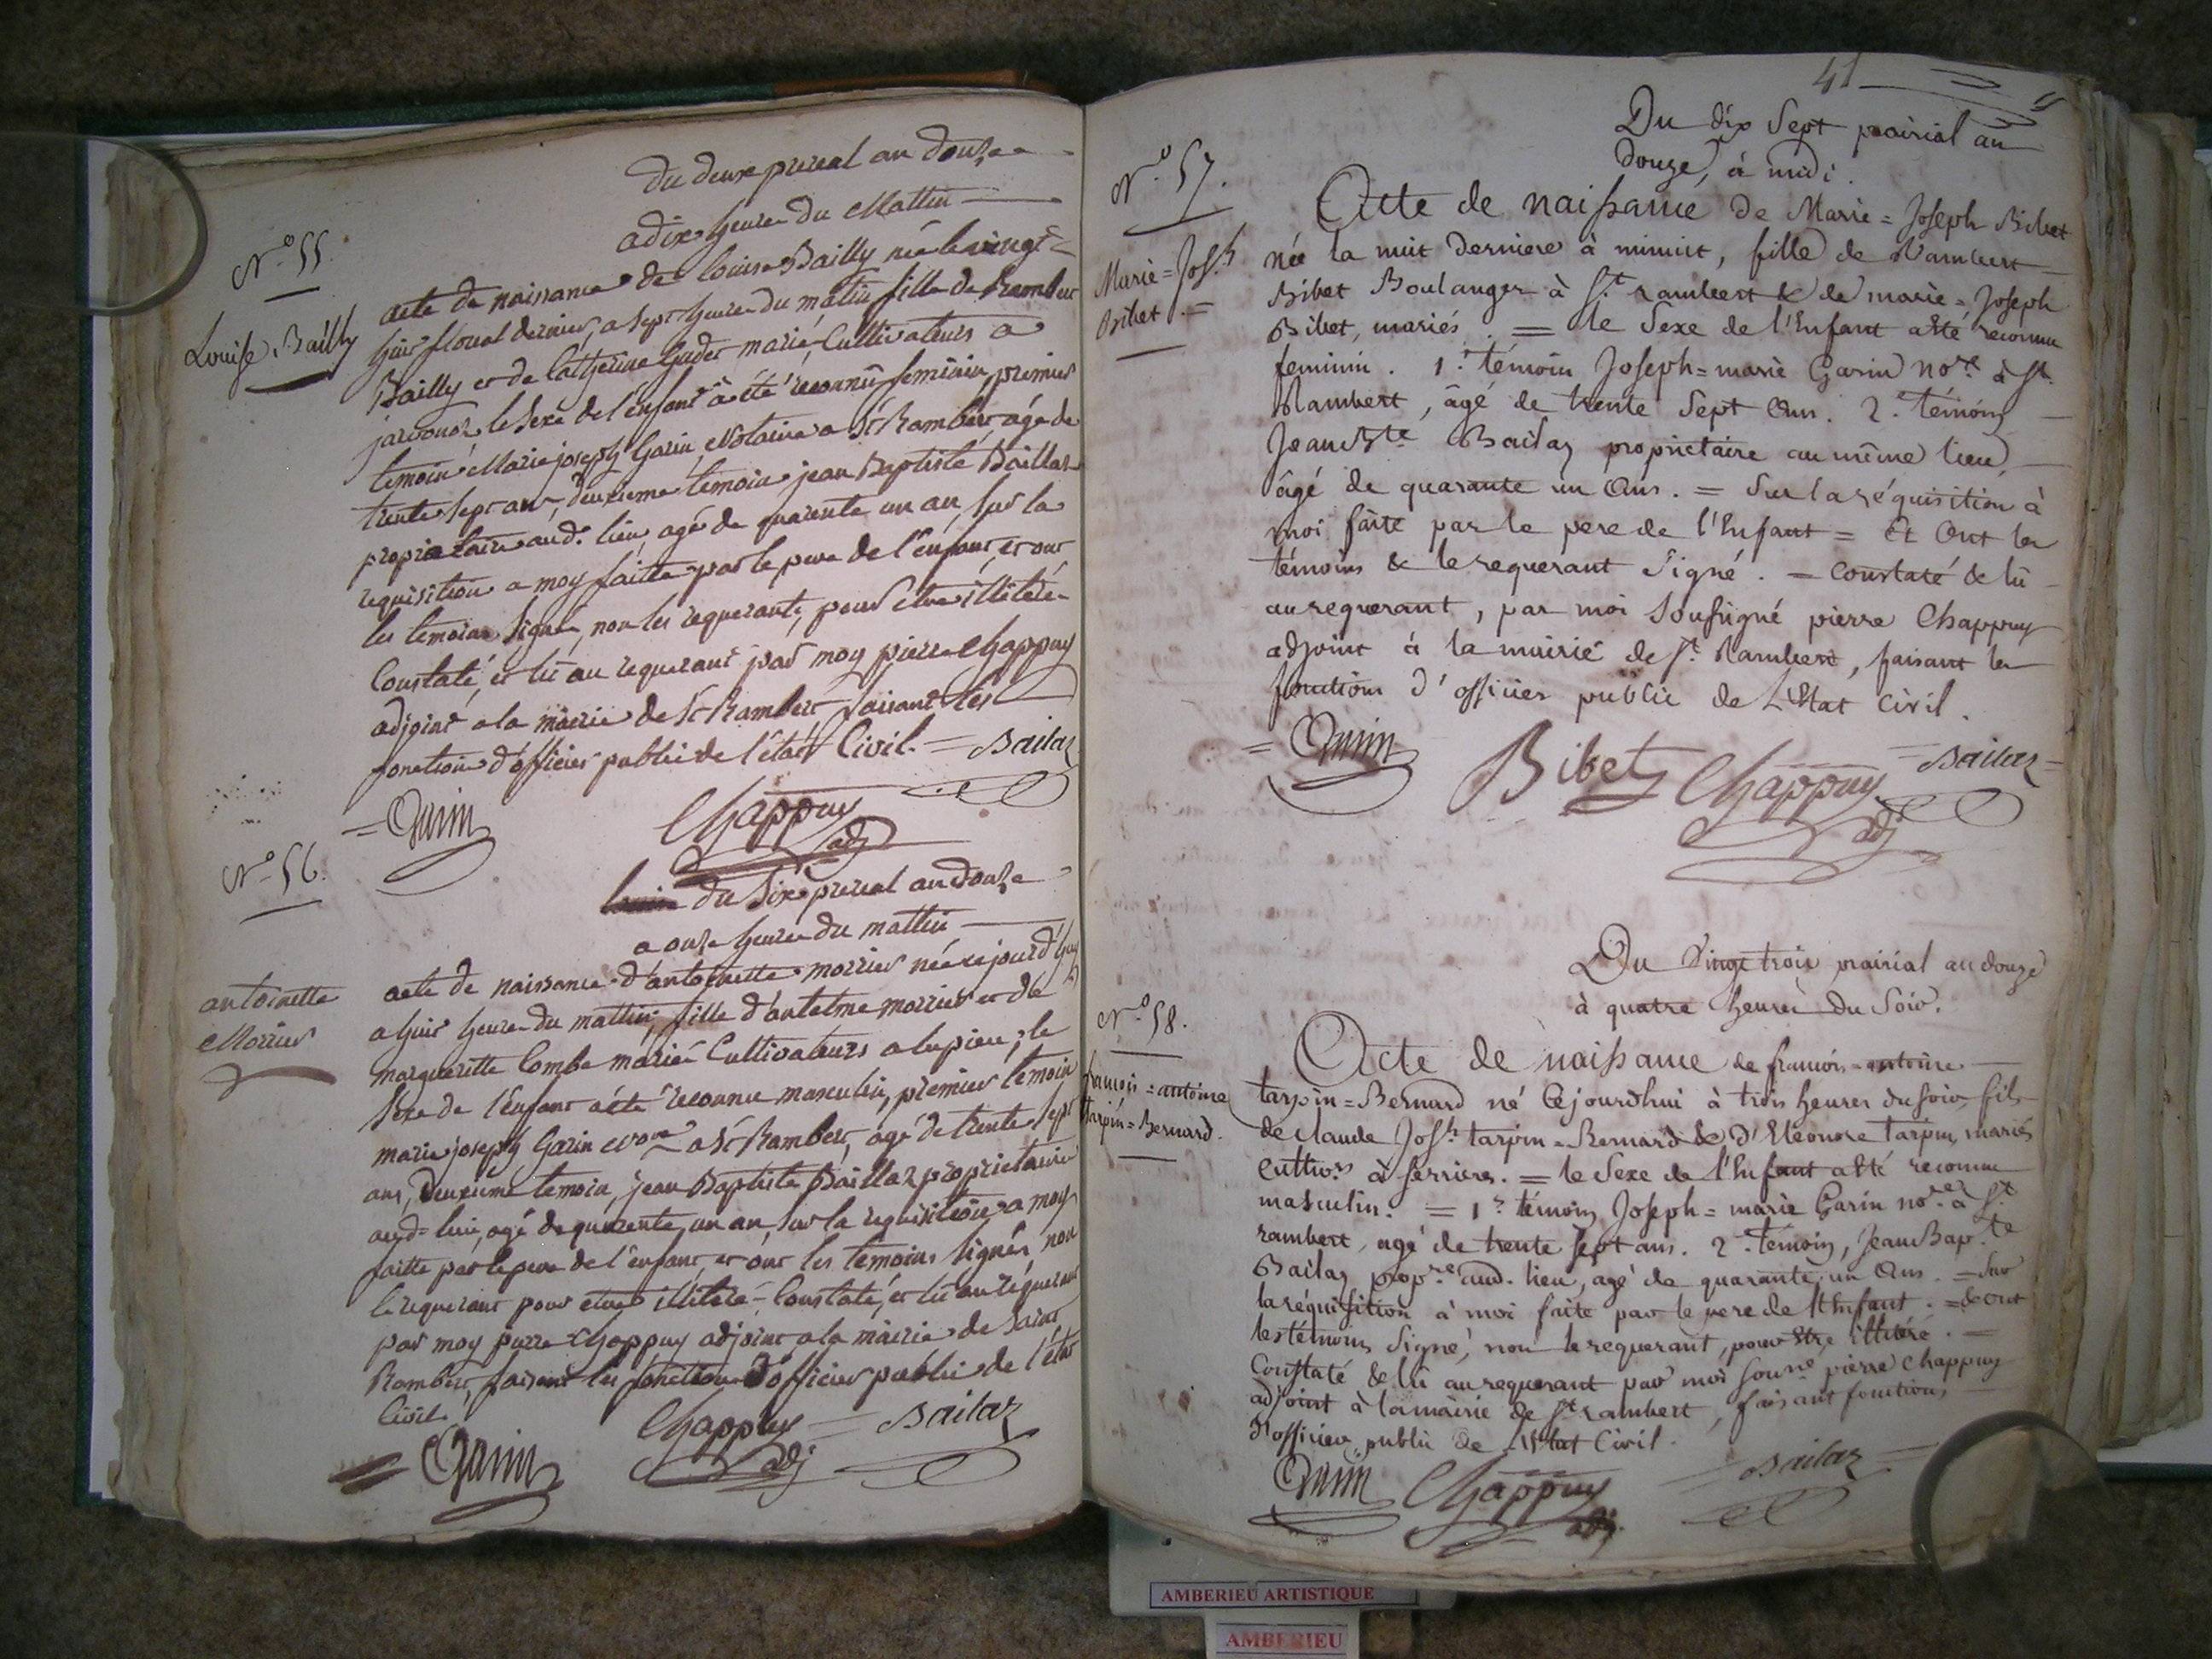 du deux prereal an douze
a dix heure du Mattin
N.o 55.
Louise Bailly
acte de naissance de louise Bailly née le vingt
huit floreal dernier, a sept heure du matin fille de Rambert
Bailly et de Catherine Guder marié, Cultivateurs a
javornoz, le sexe de l'enfant a été reconnü feminin, premier
temoin Marie joseph Garin, Notaire a St Rambert, agé de
trente sept ans, deuxieme temoin jean Baptiste Baillaz
proprietaire aud. lieu agé de quarente un an, sur la
requisition a moy faitte par le pere de l'enfant, et ont
les temoins signés, non les requerants, pour etre illiteré
Constaté, et lü au requerant par moy pierre Chappuy
adjoint a la mairie de St Rambert faisant les
fonction d'officier public de l'état Civil. = Bailaz
= Garin
Chappuy
adj
N.o 56.
du Six prereal an douze
a onze heure du mattin
antoinette
Morrier
acte de naissance d'antoinette morrier née cejourd'huy
a huit heure du mattin, fille d'antelme morrier et de
margueritte Combe marié Cultivateurs a lupieu; le
sexe de l'enfant a été reconnu masculin, premier temoin
marie joseph Garin no.re a St Rambert, agé de trente sept
ans, deuxieme temoin, jean Baptiste Baillaz proprietaire
aud. lieu, agé de quarente un an, sur la requisition a moy
faitte par le pere de l'enfant, et ont les temoins signés, non
le requerant pour etre illiteré = Constaté, et lü au requerant
par moy pierre Chappuy adjoint a la mairie de saint
Rambert, faisant les fonction d'officier public de l'état
Civil.
= Garin
Chappuy
adj
= Bailaz
41
Du dix Sept prairial an
douze, à midi.
N.o 57.
Marie = Jos.h
Bibet =
Acte de naissance de Marie = Joseph Bibet
née la nuit derniere à minuit, fille de Rambert
Bibet Boulanger à St. rambert & de marie = Joseph
Bibet, mariés. = le Sexe de l'Enfant a Eté reconnu
feminin. 1.r témoin Joseph = marie Garin no.re à St.
Rambert, âgé de trente Sept Ans. 2.e témoin
Jean Bte Bailaz proprietaire au même lieu,
âgé de quarante un Ans. = Sur la réquisition à
moi faite par le pere de l'Enfant = Et Ont les
témoins & le requerant Signé. = Constaté & lü
au requerant, par moi Soussigné pierre Chappuy
adjoint à la mairie de St. Rambert, faisant les
fonctions d'officier public de L'Etat Civil.
= Garin
Bibet
Chappuy
adj
= Bailaz =
Du Vingt trois prairial an douze
à quatre heures du Soir.
N.o 58.
francois = antoine
tarpin = Bernard.
Acte de naissance de francois = antoine
tarpin = Bernard né Cejourdhui à trois heures du soir, fils
de claude Jos.h tarpin = Bernard & d'Eleonore Tarpin, mariés
Cultiv.rs à serrieres. = le Sexe de l'Enfant a Eté reconnu
masculin. = 1.r témoin Joseph = marie Garin no.re à St
rambert, agé de trente sept ans. 2.e témoin, Jean Bap.te
Bailaz prop.re aud. lieu, agé de quarante un Ans. = Sur
la réquisition à moi faite par le pere de l'Enfant. = & ont
les témoins Signé, non le requerant, pour Etre illitéré. =
Constaté & lü au requerant par moi Sous.né pierre Chappuy
adjoint à la mairie de St rambert, faisant fonctions
d'officier public de L'Etat Civil.
Garin
Chappuy
adj.
Bailaz =
AMBERIEU ARTISTIQUE
AMBERIEU